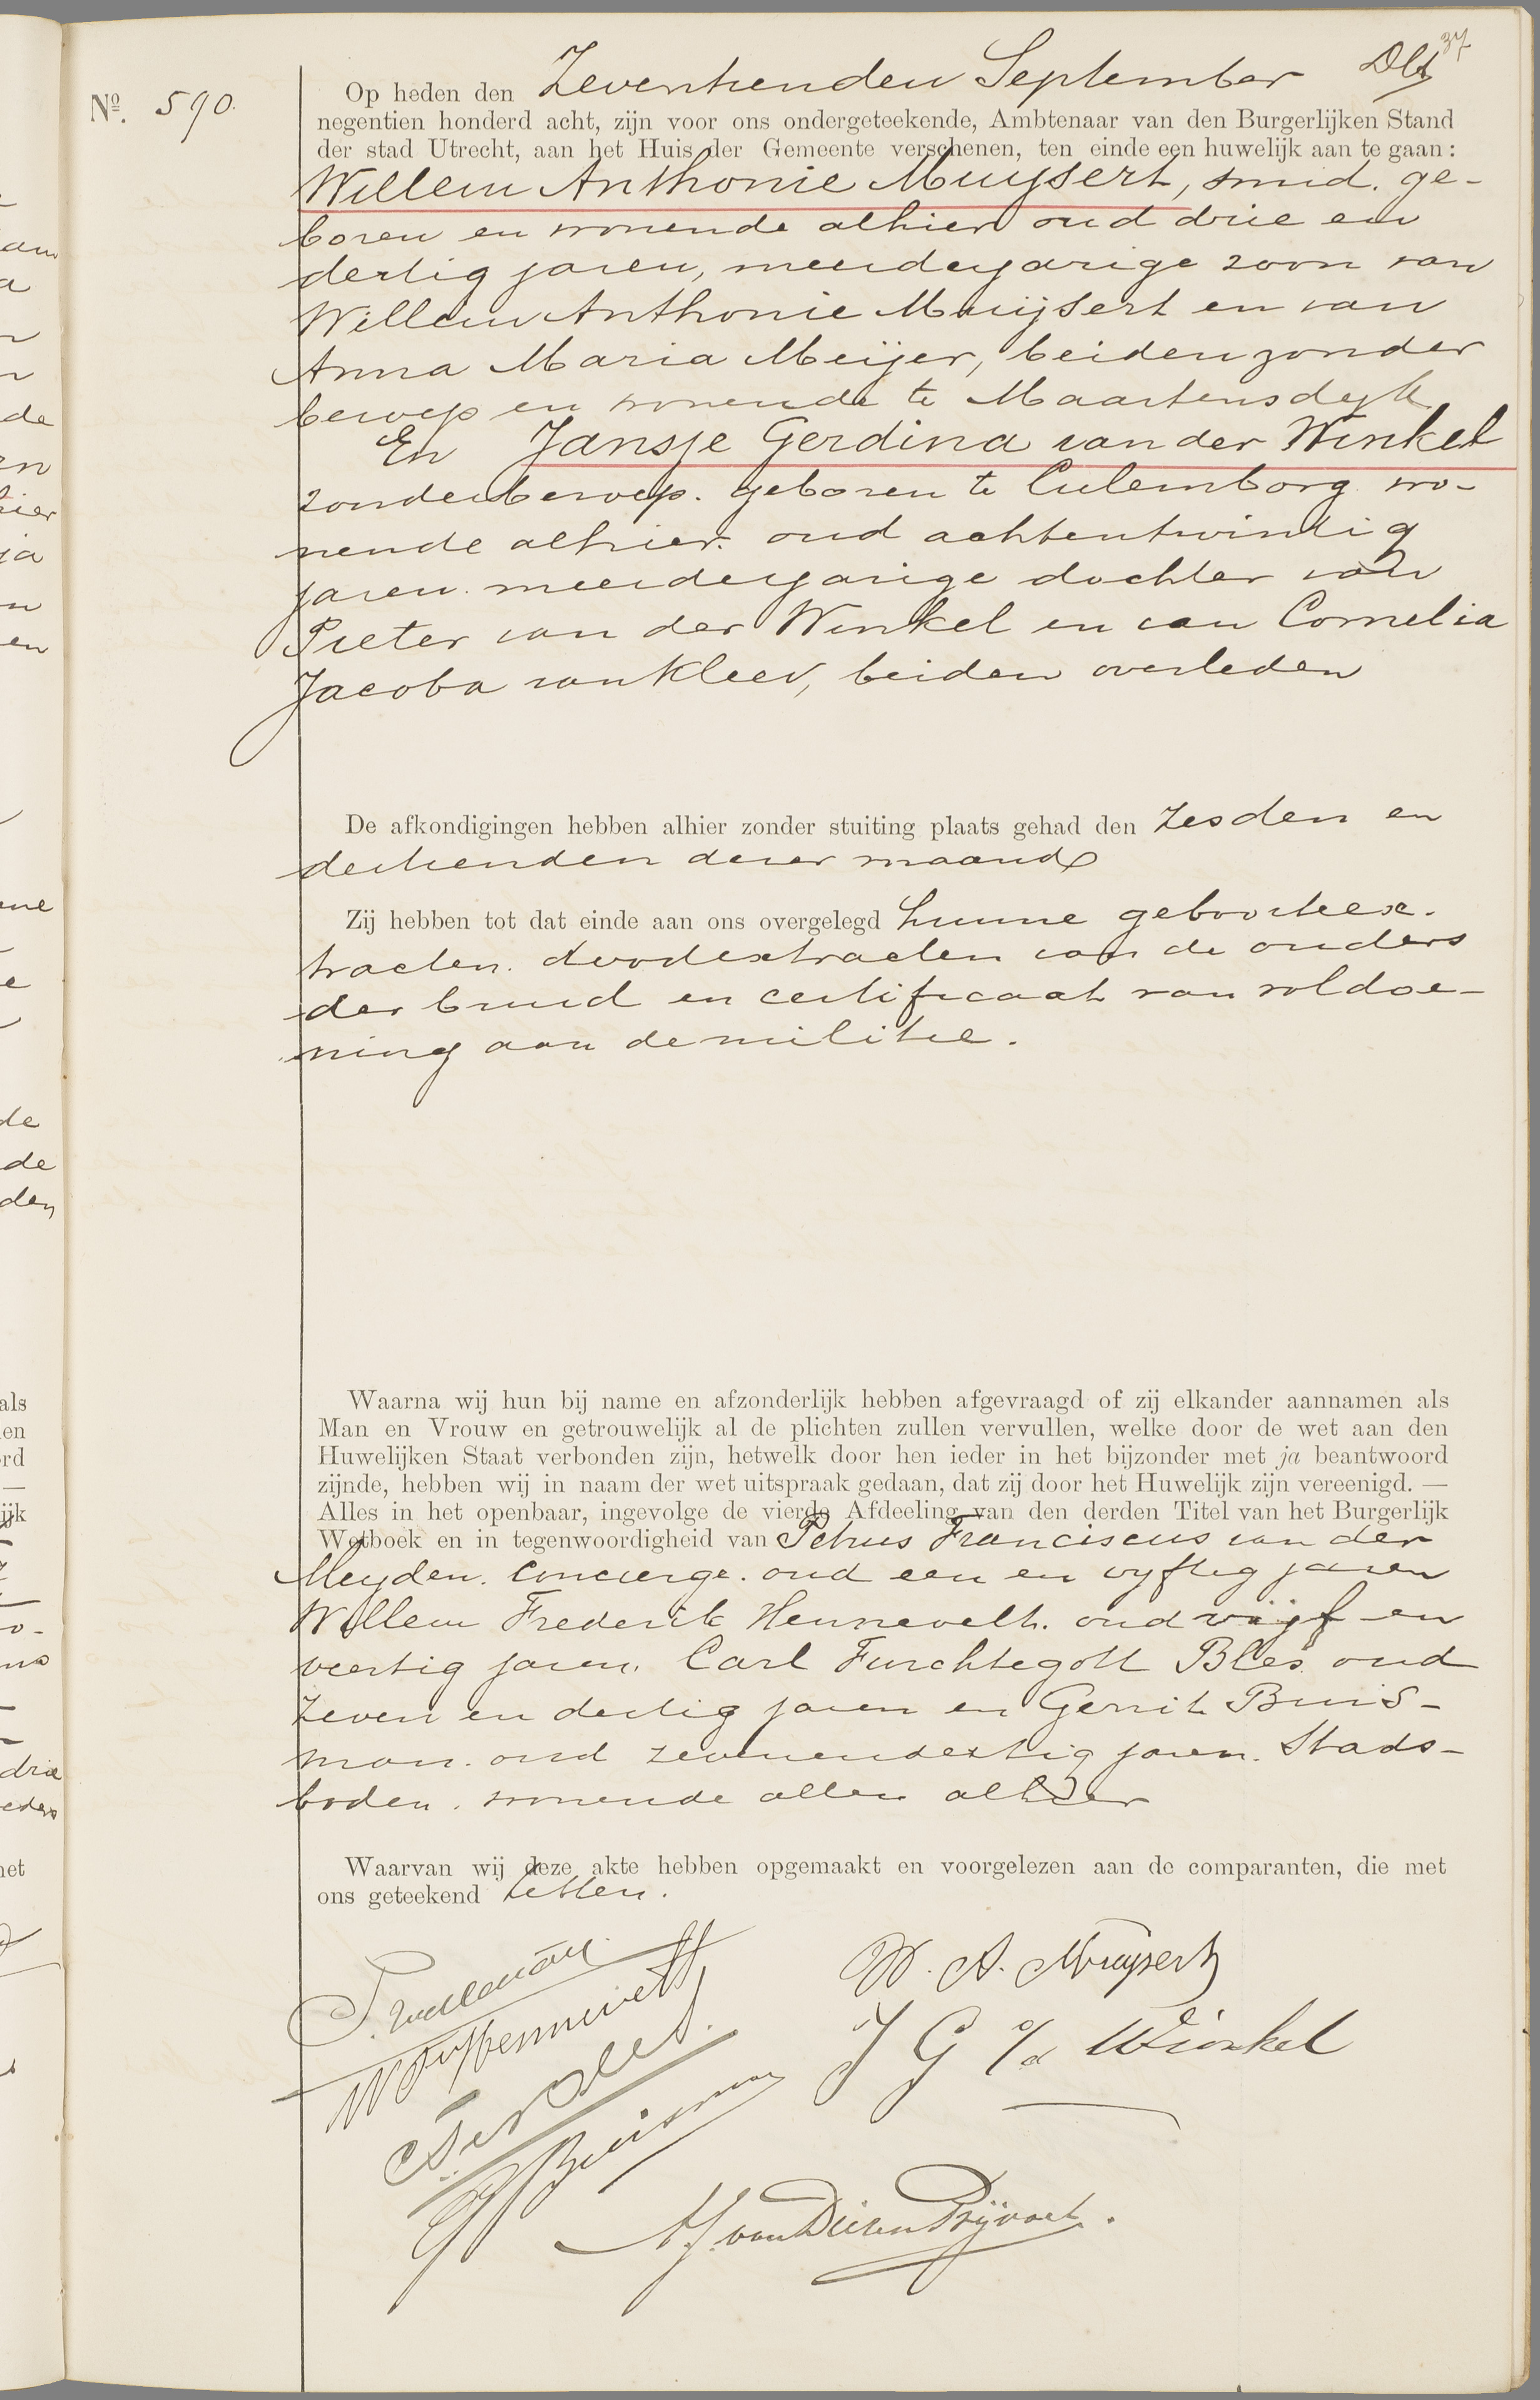 37
Nº. 590.
Op heden den Zeventienden September
negentien honderd acht, zijn voor ons ondergeteekende, Ambtenaar van den Burgerlijken Stand
der stad Utrecht, aan het Huis der Gemeente verschenen, ten einde een huwelijk aan te gaan:
Willem Anthonie Muijsert, smid. ge-
boren en wonende alhier oud drie en
dertig jaren, meerderjarige zoon van
Willem Anthonie Muijsert en van
Anna Maria Meijer, beiden zonder
beroep en wonende te Maartensdyk
En Jansje Gerdina van der Winkel
zonder beroep. geboren te Culemborg wo-
nende alhier. oud achtentwintig
jaren. meerderjarige dochter van
Pieter van der Winkel en van Cornelia
Jacoba van Kleef, beiden overleden
De afkondigingen hebben alhier zonder stuiting plaats gehad den zesden en
dertienden dezer maand
Zij hebben tot dat einde aan ons overgelegd hunne geboorteex-
tracten. doodextracten van de ouders
der bruid en certificaat van voldoe-
ning aan de militie.
Waarna wij hun bij name en afzonderlijk hebben afgevraagd of zij elkander aannamen als
Man en Vrouw en getrouwelijk al de plichten zullen vervullen, welke door de wet aan den
Huwelijken Staat verbonden zijn, hetwelk door hen ieder in het bijzonder met ja beantwoord
zijnde, hebben wij in naam der wet uitspraak gedaan, dat zij door het Huwelijk zijn vereenigd. —
Alles in het openbaar, ingevolge de vierde Afdeeling van den derden Titel van het Burgerlijk
Wetboek en in tegenwoordigheid van Petrus Franciscus van der
Meyden. Concierge. oud een en vyftig jaren
Willem Frederik Hennevelt. oud vijf en
veertig jaren. Carl Furchtegott Bles oud
zeven en dertig jaren en Gerrit Buis-
man. oud zevenendertig jaren. Stads-
boden. wonende allen alhier
Waarvan wij deze akte hebben opgemaakt en voorgelezen aan de comparanten, die met
ons geteekend hebben.
W. A. Muysert
J G v/d Winkel
G Buisman